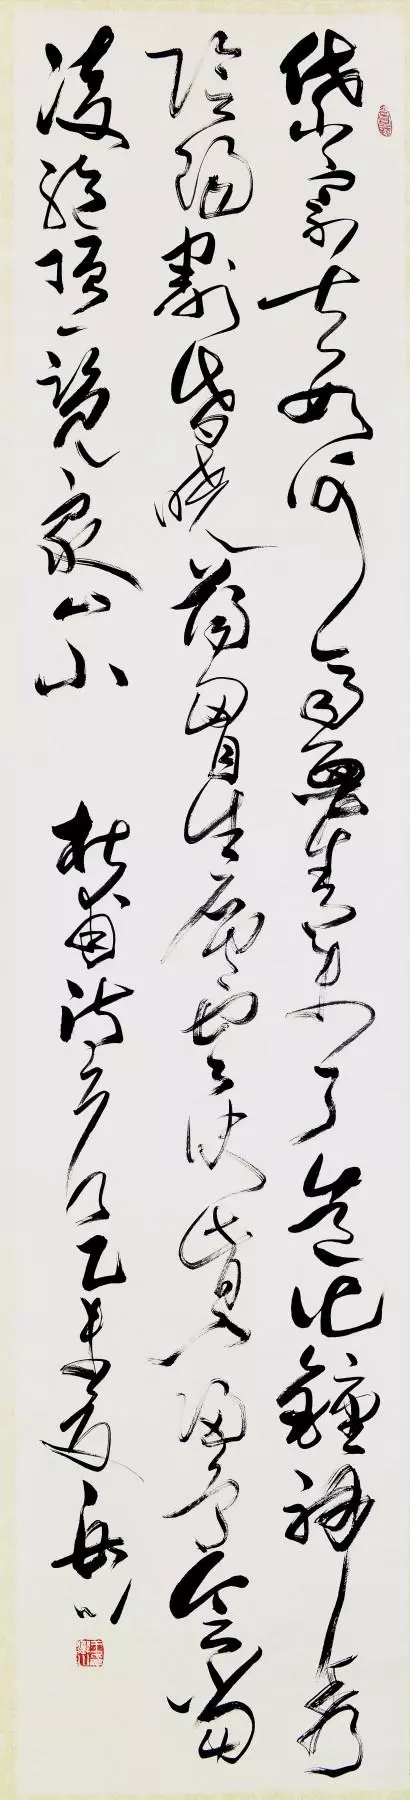 岱宗夫如何齊魯青未了造化鐘神秀
陰陽割昏曉蕩胸生層雲決眥入歸鳥會當
凌絕頂一覽眾山小 杜甫詩 乙未夏